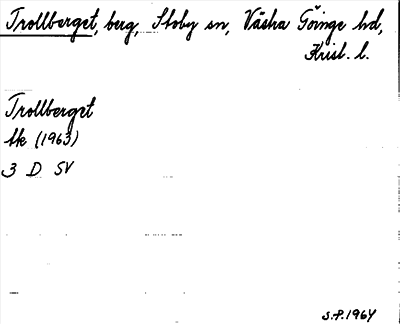 Trollberget, berg, Stoby sn, Västra Göinge hd,
Krist. l.
Trollberget
tk (1963)
3 D SV
S.P. 1964